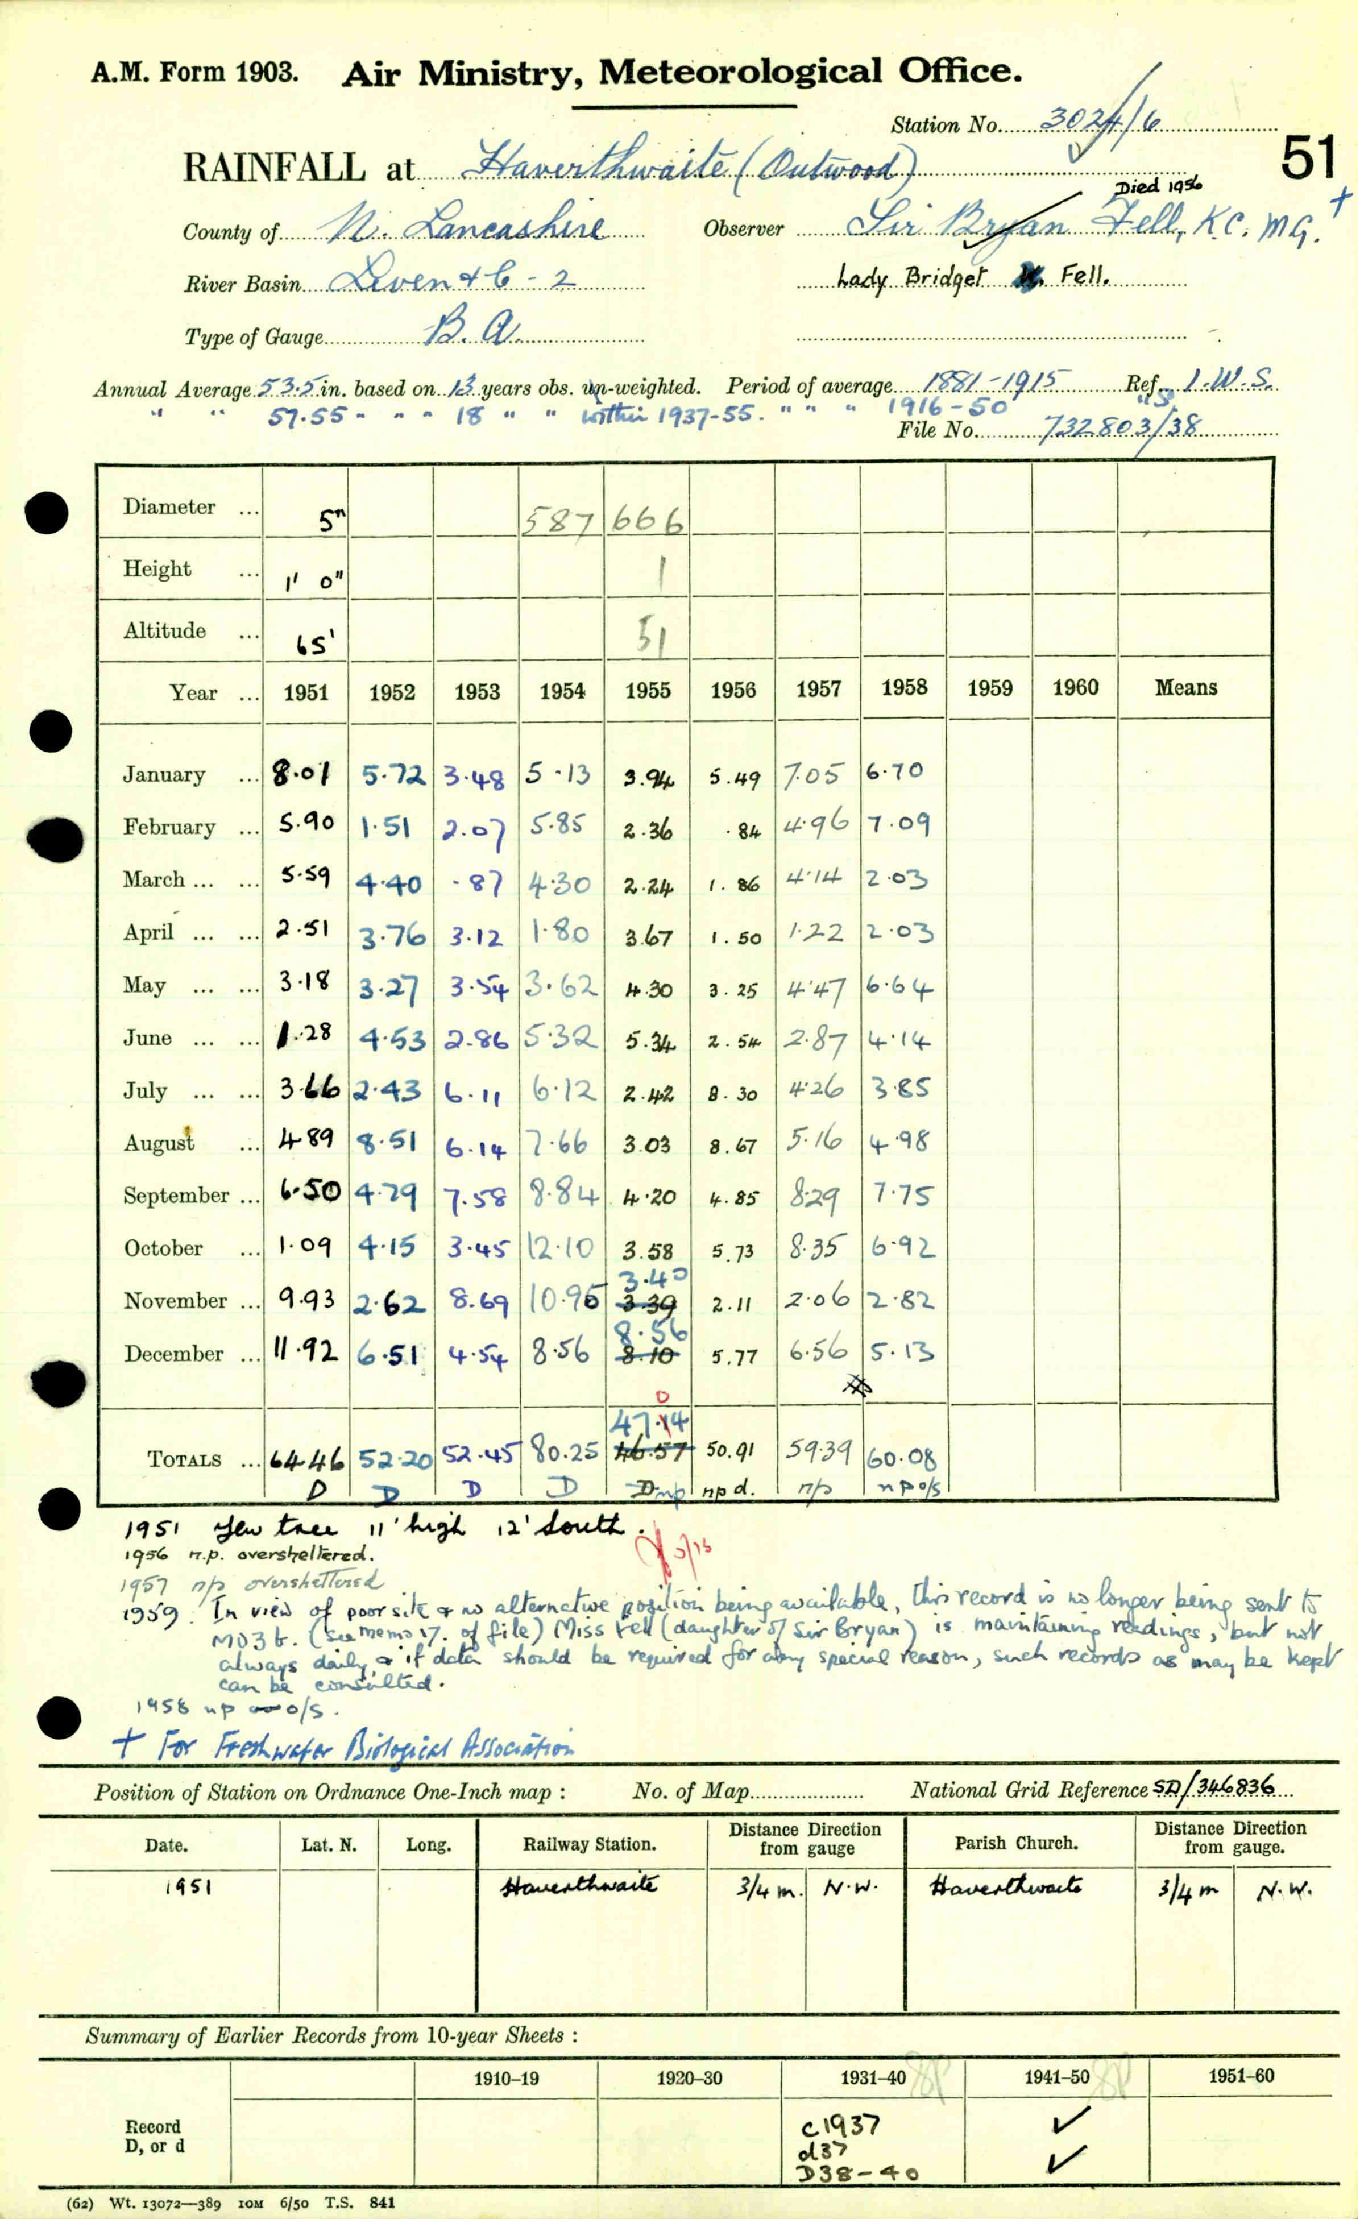 A.M. Form 1903. Air Ministry, Meteorological Office.
Station No. 3024/6
51
RAINFALL at Haverthwaite (Outwood)
Died 1956
County of N. Lancashire Observer Sir Bryan Fell, K.C. M.G. +
River Basin Leven & C - 2 Lady Bridget Fell.
Type of Gauge B.A.
Annual Average 53.5 in. based on 13 years obs. un-weighted. Period of average 1881-1915 Ref. I.W.S.
" " 57.55 " " " 18 " " within 1937-55. " " " 1916-50 "S.
File No. 732803/38
Diameter ... 5" 587 666
Height ... 1' 0" 1
Altitude ... 65' 51
Year ... 1951 1952 1953 1954 1955 1956 1957 1958 1959 1960 Means
January ... 8.01 5.72 3.48 5.13 3.94 5.49 7.05 6.70
February ... 5.90 1.51 2.07 5.85 2.36 .84 4.96 7.09
March ... ... 5.59 4.40 .87 4.30 2.24 1.86 4.14 2.03
April ... ... 2.51 3.76 3.12 1.80 3.67 1.50 1.22 2.03
May ... ... 3.18 3.27 3.54 3.62 4.30 3.25 4.47 6.64
June ... ... 1.28 4.53 2.86 5.32 5.34 2.54 2.87 4.14
July ... ... 3.66 2.43 6.11 6.12 2.42 8.30 4.26 3.85
August ... 4.89 8.51 6.14 7.66 3.03 8.67 5.16 4.98
September ... 6.50 4.79 7.58 8.84 4.20 4.85 8.29 7.75
October ... 1.09 4.15 3.45 12.10 3.58 5.73 8.35 6.92
3.40
November ... 9.93 2.62 8.69 10.95 3.39 2.11 2.06 2.82
8.56
December ... 11.92 6.51 4.54 8.56 8.10 5.77 6.56 5.13
0
47.14
TOTALS ... 64.46 52.20 52.45 80.25 46.57 50.91 59.39 60.08
D D D D D np np d. n/p n p o/s
1951 Yew tree 11' high 12' South.
1956 n.p. oversheltered.
1957 n/p oversheltered
1959. In view of poor site & no alternative position being available, this record is no longer being sent to
MO3b. (see memo 17. of file) Miss Fell (daughter of Sir Bryan) is maintaining readings, but not
always daily, & if data should be required for any special reason, such records as may be kept
can be consulted.
1958 np o/s.
+ For Freshwater Biological Association
Position of Station on Ordnance One-Inch map : No. of Map National Grid Reference SD/346836
Date. Lat. N. Long. Railway Station. Distance from Direction gauge Parish Church. Distance from Direction gauge.
1951 Haverthwaite 3/4 m. N.W. Haverthwaite 3/4 m N.W.
Summary of Earlier Records from 10-year Sheets :
1910–19 1920–30 1931–40 1941–50 1951–60
Record D, or d c1937 ✓
d37
D38-40 ✓
(62) Wt. 13072—389 10M 6/50 T.S. 841